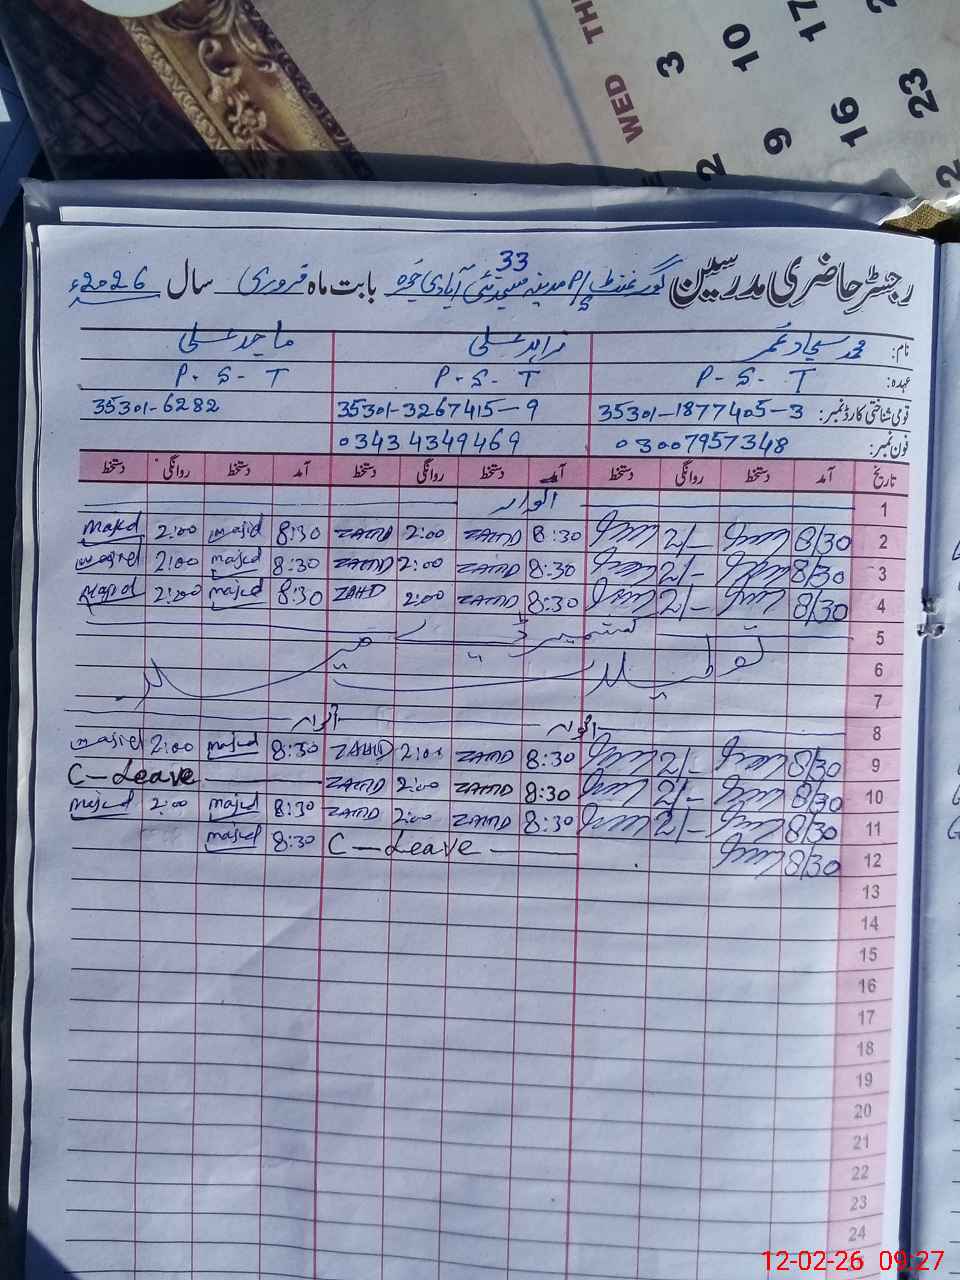 THU WED
3 10 17
2 9 16 23
رجسٹر حاضری مدرسین گورنمنٹ P/S مدینہ مسجد نئی آبادی 33 بابت ماہ فروری سال 2026ء
نام: محمد سجاد عمر زاہد علی ماجد علی
عہدہ: P-S-T P-S-T P-S-T
قومی شناختی کارڈ نمبر: 35301-1877405-3 35301-3267415-9 35301-6282
فون نمبر: 03007957348 03434349469
تاریخ آمد دستخط روانگی دستخط آمد دستخط روانگی دستخط آمد دستخط روانگی دستخط
1 اتوار
2 8/30 2/- 8:30 ZAHID 2:00 ZAHID 8:30 majid 2:00 majid
3 8/30 2/- 8:30 ZAHID 2:00 ZAHID 8:30 majid 2:00 majid
4 8/30 2/- 8:30 ZAHID 2:00 ZAHID 8:30 majid 2:00 majid
5 کشمیر ڈے
6 تعطیلات
7
8 اتوار اتوار
9 8/30 2/- 8:30 ZAHID 2:00 ZAHID 8:30 majid 2:00 majid
10 8/30 2/- 8:30 ZAHID 2:00 ZAHID C-Leave
11 8/30 2/- 8:30 ZAHID 2:00 ZAHID 8:30 majid 2:00 majid
12 8/30 C-Leave 8:30 majid
13
14
15
16
17
18
19
20
21
22
23
24
12-02-26 09:27